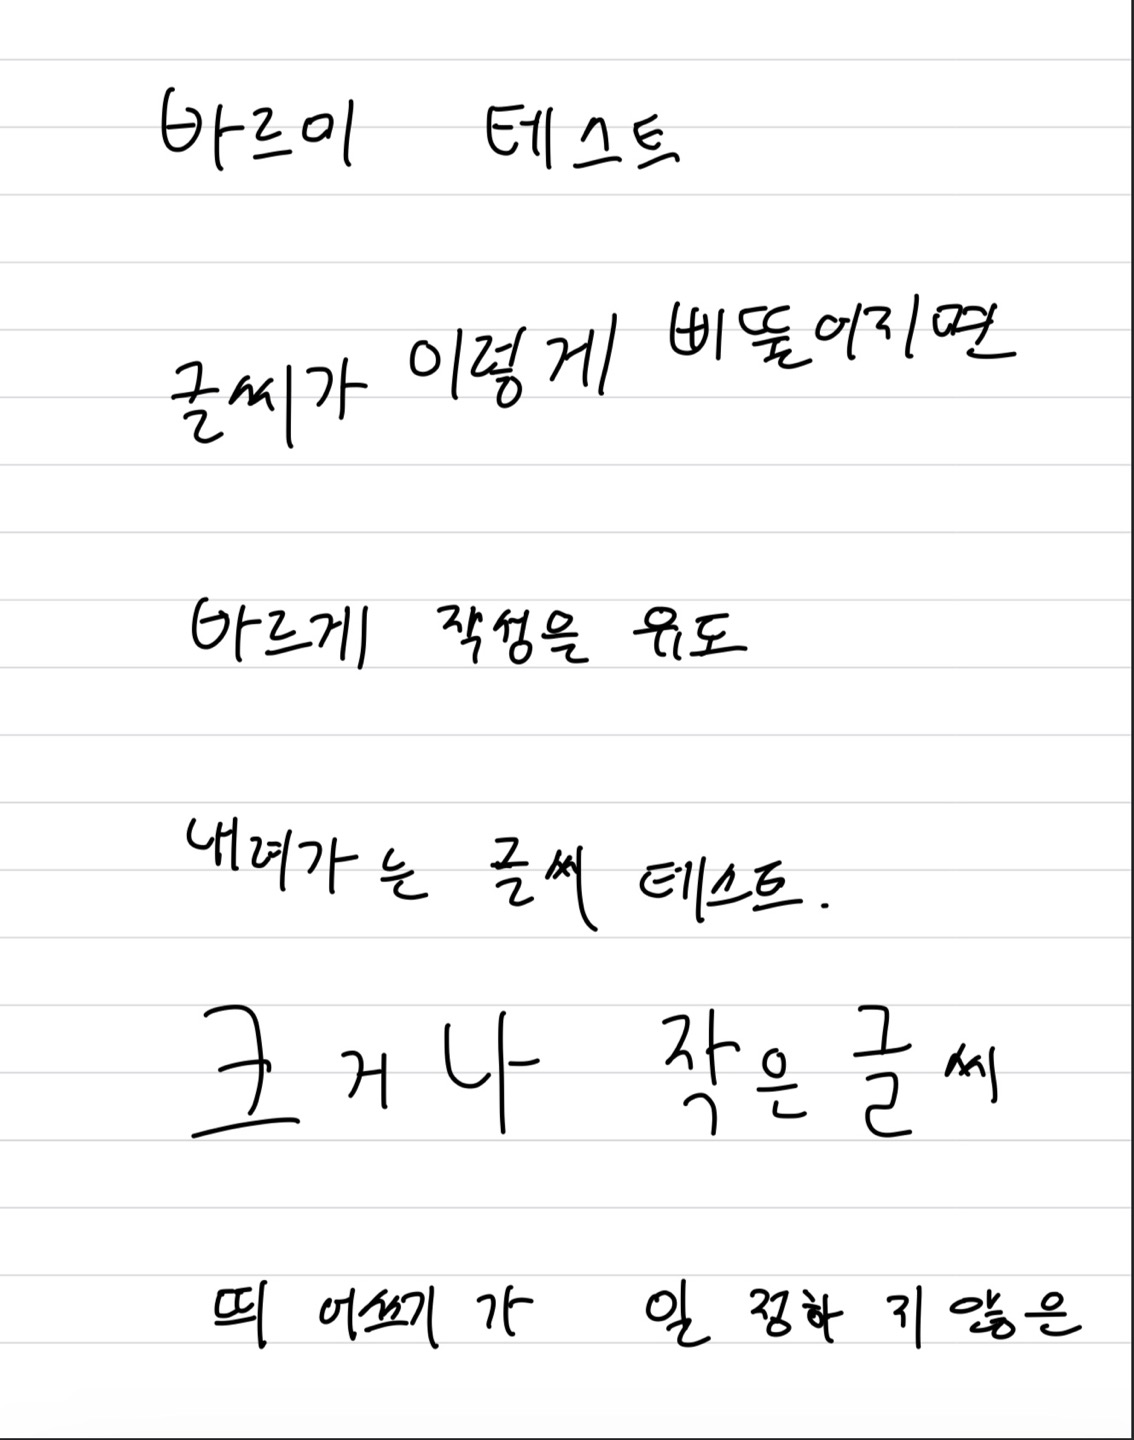 바르미 테스트
글씨가 이렇게 삐뚤어지면
바르게 작성을 유도
내려가는 글씨 테스트.
크거나 작은글씨
띄 어쓰기 가 일 정하 지 않은